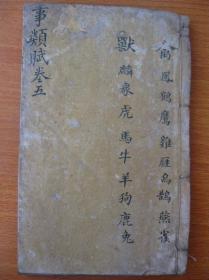 鳳鶴鷹雞雁烏鵲燕雀
獸麟象虎馬牛羊狗鹿兔
事類賦卷五